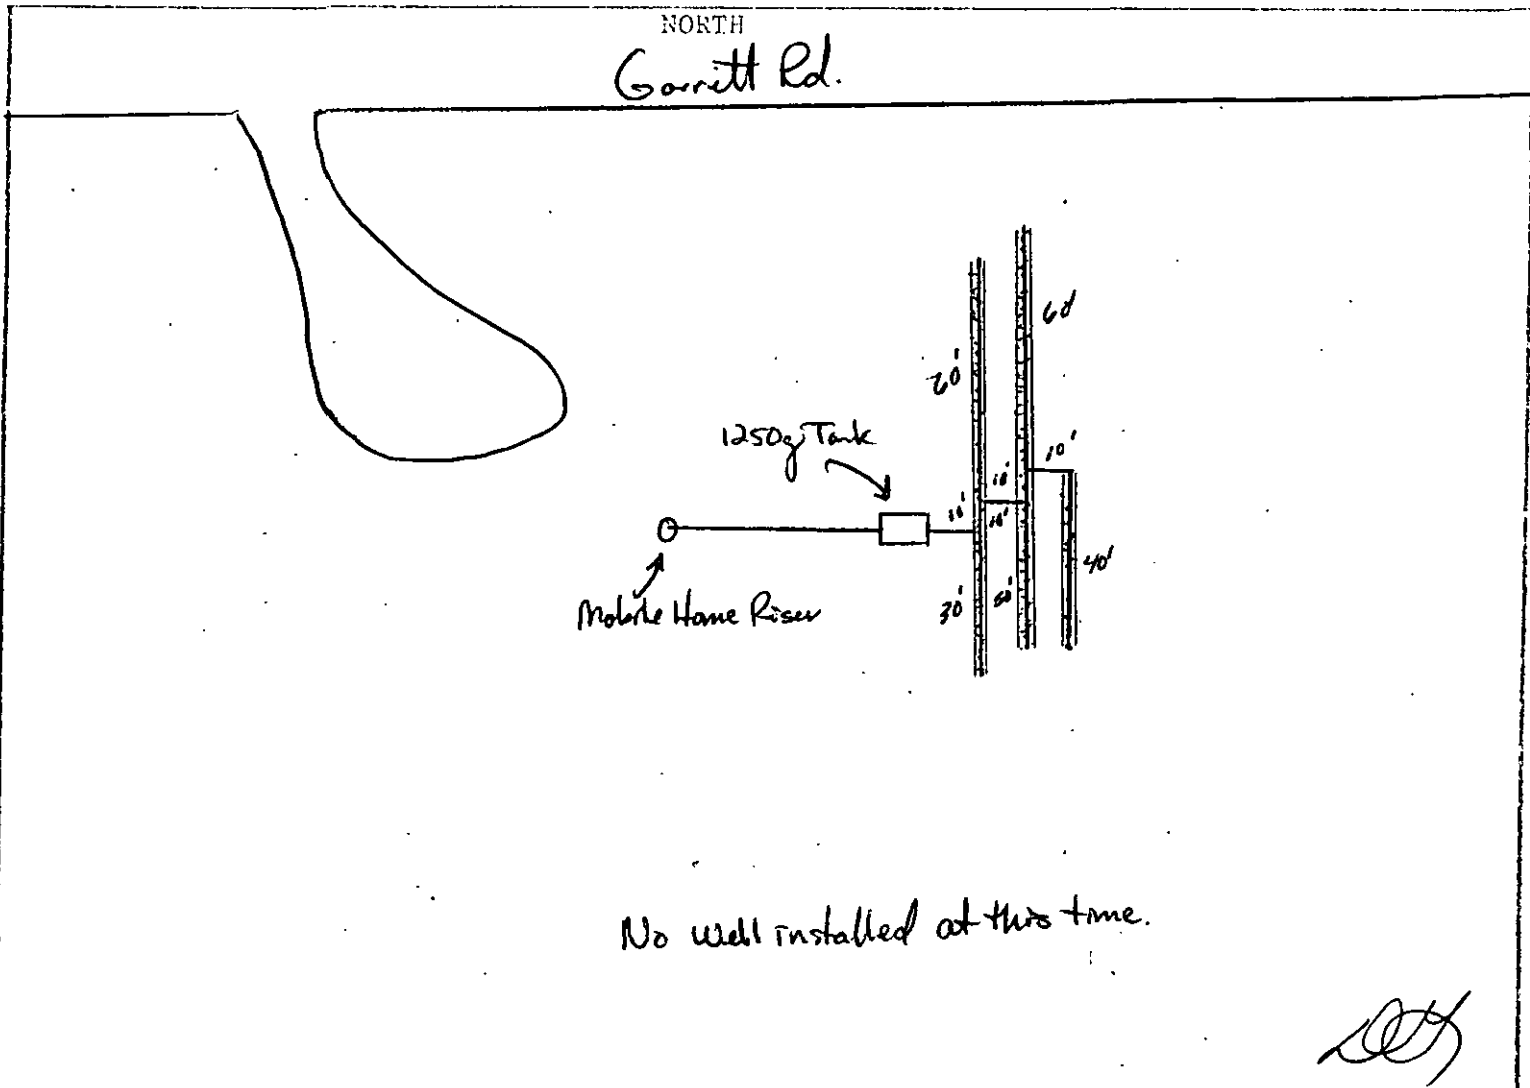 NORTH
Garrett Rd.
60'
10'
1250g Tank
10'
10'
10'
40'
30'
50'
Mobile Home Riser
No well installed at this time.